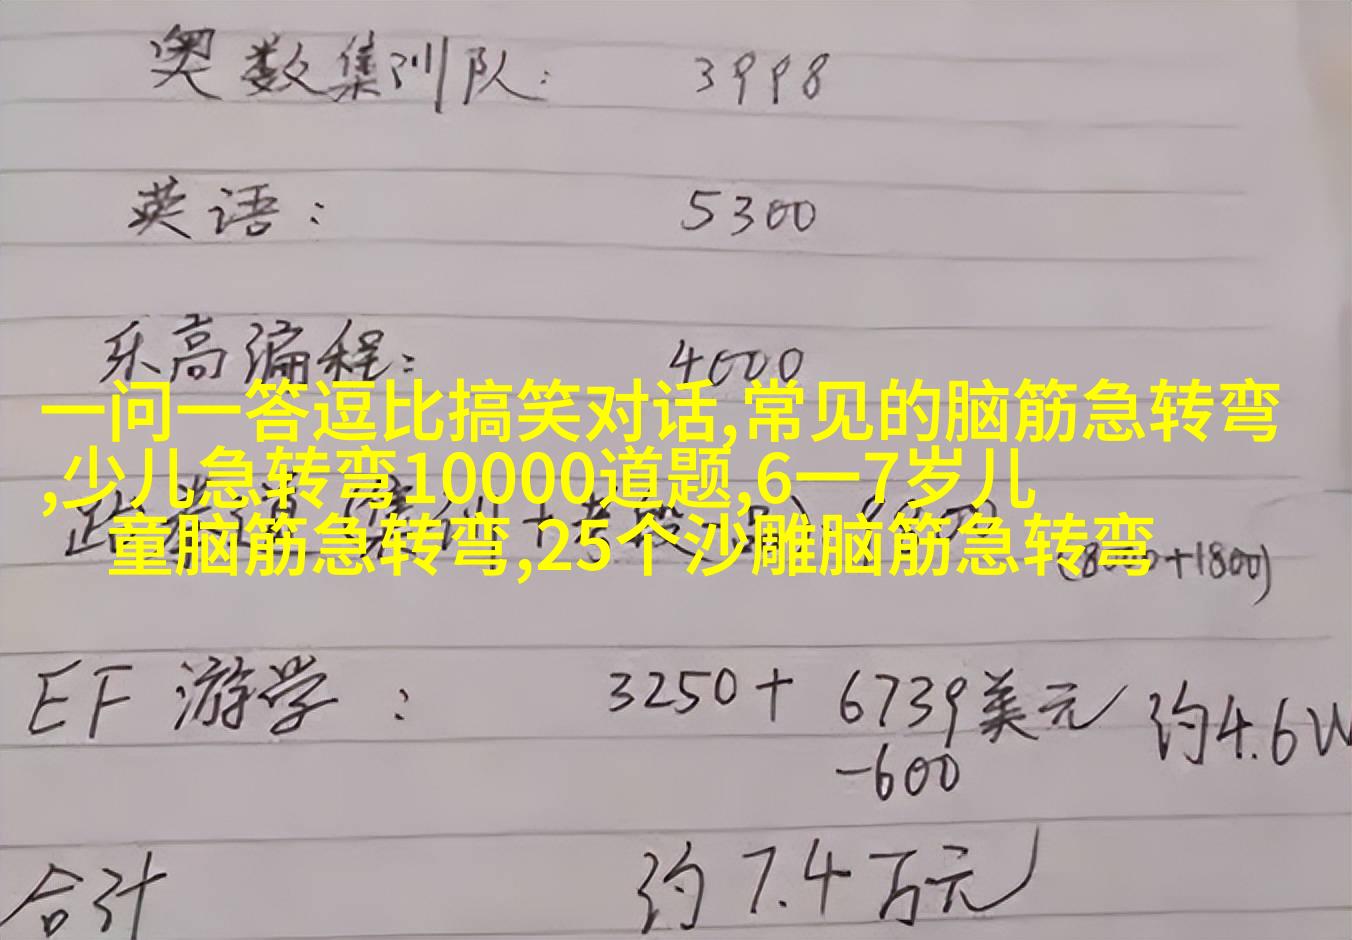 奥数集训队: 3998
英语: 5300
乐高编程: 4000
一问一答逗比搞笑对话,常见的脑筋急转弯
,少儿急转弯10000道题,6一7岁儿
童脑筋急转弯,25个沙雕脑筋急转弯
+1800)
EF 游学: 3250+ 6739美元 约4.6W
-600
合计 约7.4万元